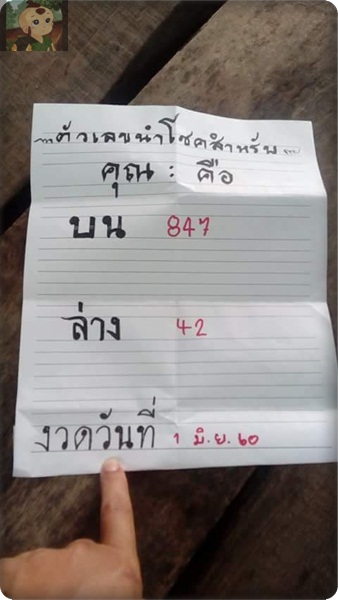 ...ตัวเลขนำโชคสำหรับ...
คุณ : คือ
บน 847
ล่าง 42
งวดวันที่ 1 มิ.ย. ๖๐